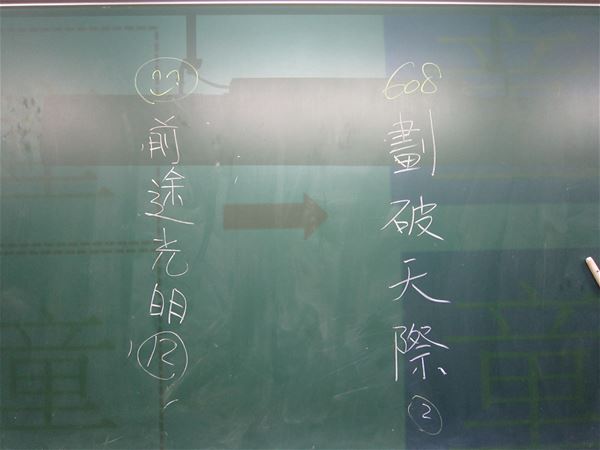 608
劃破天際
②
前途光明
⑫